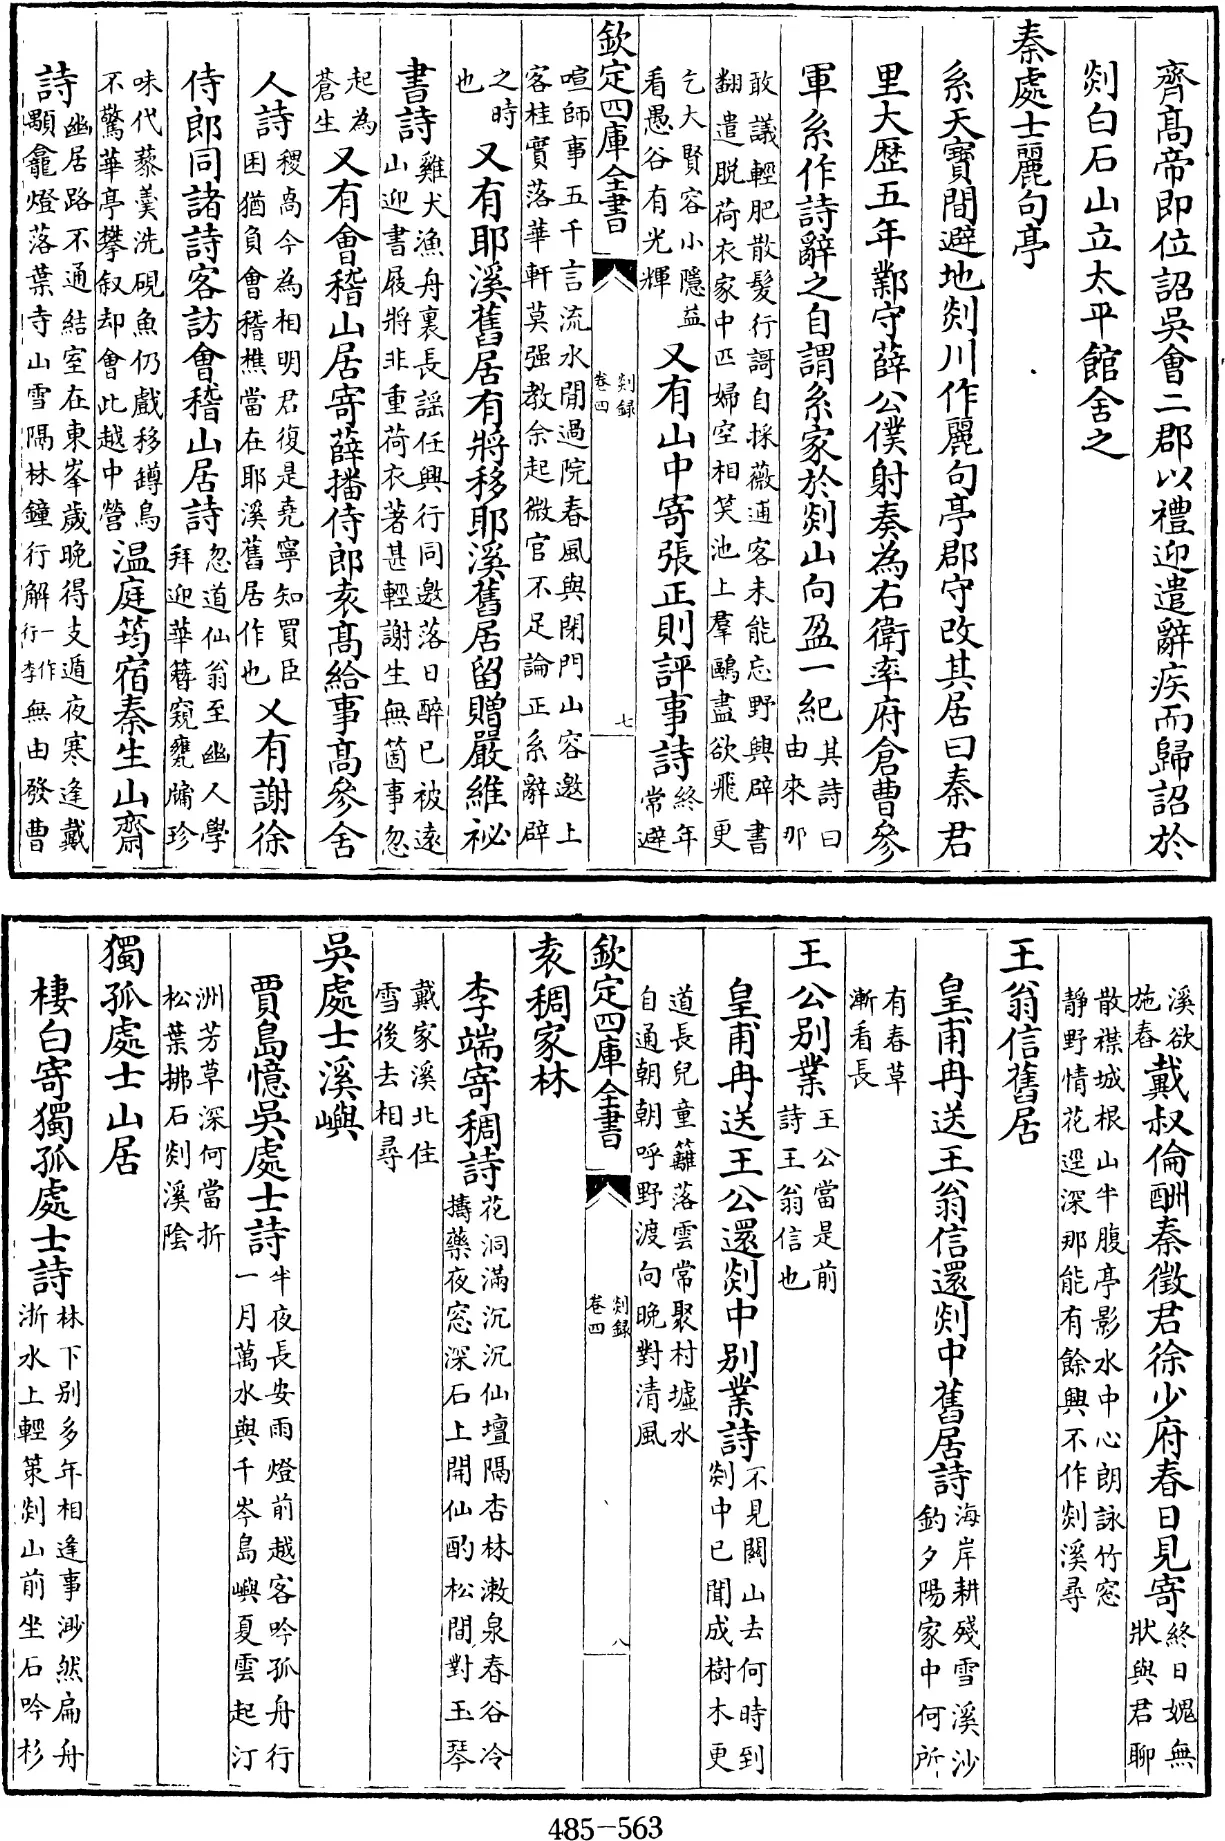 齊高帝即位詔吳會二郡以禮迎遣辭疾而歸詔於
剡白石山立太平館舍之
秦處士麗句亭
系天寶間避地剡川作麗句亭郡守改其居曰秦君
里大歴五年鄴守薛公僕射奏為右衛率府倉曹參
軍系作詩辭之自謂系家於剡山向盈一紀其詩曰由來那
敢議輕肥散髮行謌自採薇逋客未能忘野興辟書
翻遣脱荷衣家中匹婦空相笑池上羣鷗盡欲飛更
乞大賢容小隱益看愚谷有光輝又有山中寄張正則評事詩終年常避
欽定四庫全書
剡録
卷四
七
喧師事五千言流水閒過院春風與閉門山容邀上
客桂實落華軒莫强教余起微官不足論正系辭辟
之時也又有耶溪舊居有將移耶溪舊居留贈嚴維祕
書詩雞犬漁舟裏長謡任興行同邀落日醉已被遠山迎書屐將非重荷衣著甚輕謝生無箇事忽
起為蒼生又有會稽山居寄薛播侍郎袁高給事高參舍
人詩稷卨今為相明君復是堯寧知買臣困猶負會稽樵當在耶溪舊居作也又有謝徐
侍郎同諸詩客訪會稽山居詩忽道仙翁至幽人學拜迎華簪窺甕牖珍
味代藜羮洗硯魚仍戲移罇鳥不驚華亭攀叙却會此越中營温庭筠宿秦生山齋
詩幽居路不通結室在東峯歲晚得支遁夜寒逢戴顒龕燈落葉寺山雪隔林鐘行解一作行李無由發曹
溪欲施舂戴叔倫酬秦徵君徐少府春日見寄終日媿無狀與君聊
散襟城根山半腹亭影水中心朗詠竹窓
静野情花逕深那能有餘興不作剡溪尋
王翁信舊居
皇甫冉送王翁信還剡中舊居詩海岸耕殘雪溪沙釣夕陽家中何所
有春草漸看長
王公别業王公當是前詩王翁信也
皇甫冉送王公還剡中别業詩不見關山去何時到剡中已聞成樹木更
道長兒童籬落雲常聚村墟水
自通朝朝呼野渡向晚對清風
欽定四庫全書
剡録
卷四
八
袁稠家林
李端寄稠詩花洞滿沉沉仙壇隔杏林漱泉春谷冷擣藥夜窓深石上開仙酌松間對玉琴
戴家溪北住雪後去相尋
吳處士溪嶼
賈島憶吳處士詩半夜長安雨燈前越客吟孤舟行一月萬水與千岑島嶼夏雲起汀
洲芳草深何當折松葉拂石剡溪陰
獨孤處士山居
棲白寄獨孤處士詩林下别多年相逢事渺然扁舟浙水上輕策剡山前坐石吟杉
485-563